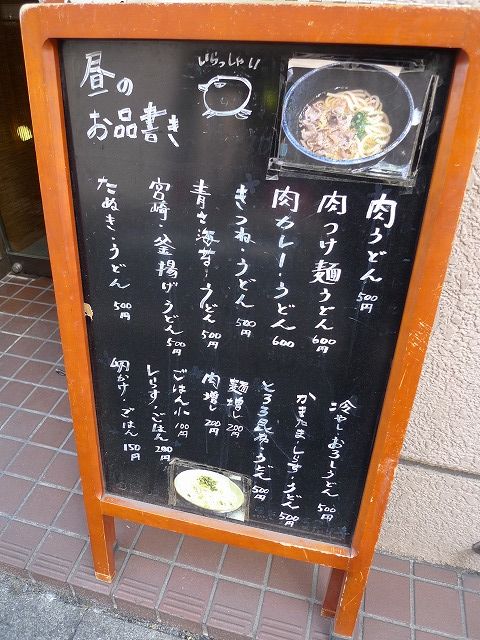 いらっしゃい
昼の
お品書き
肉うどん 500円
肉つけ麺うどん 600円
肉カレー・うどん 600
きつね・うどん 500円
青さ海苔・うどん 500円
宮崎・釜揚げうどん 500円
たぬき・うどん 500円
冷やしおろしうどん 500円
かまたま・しらす・うどん 500円
とろろ昆布・うどん 500円
麺増し 200円
肉増し 200円
ごはん小 100円
しらす・ごはん 200円
明かけ・ごはん 150円